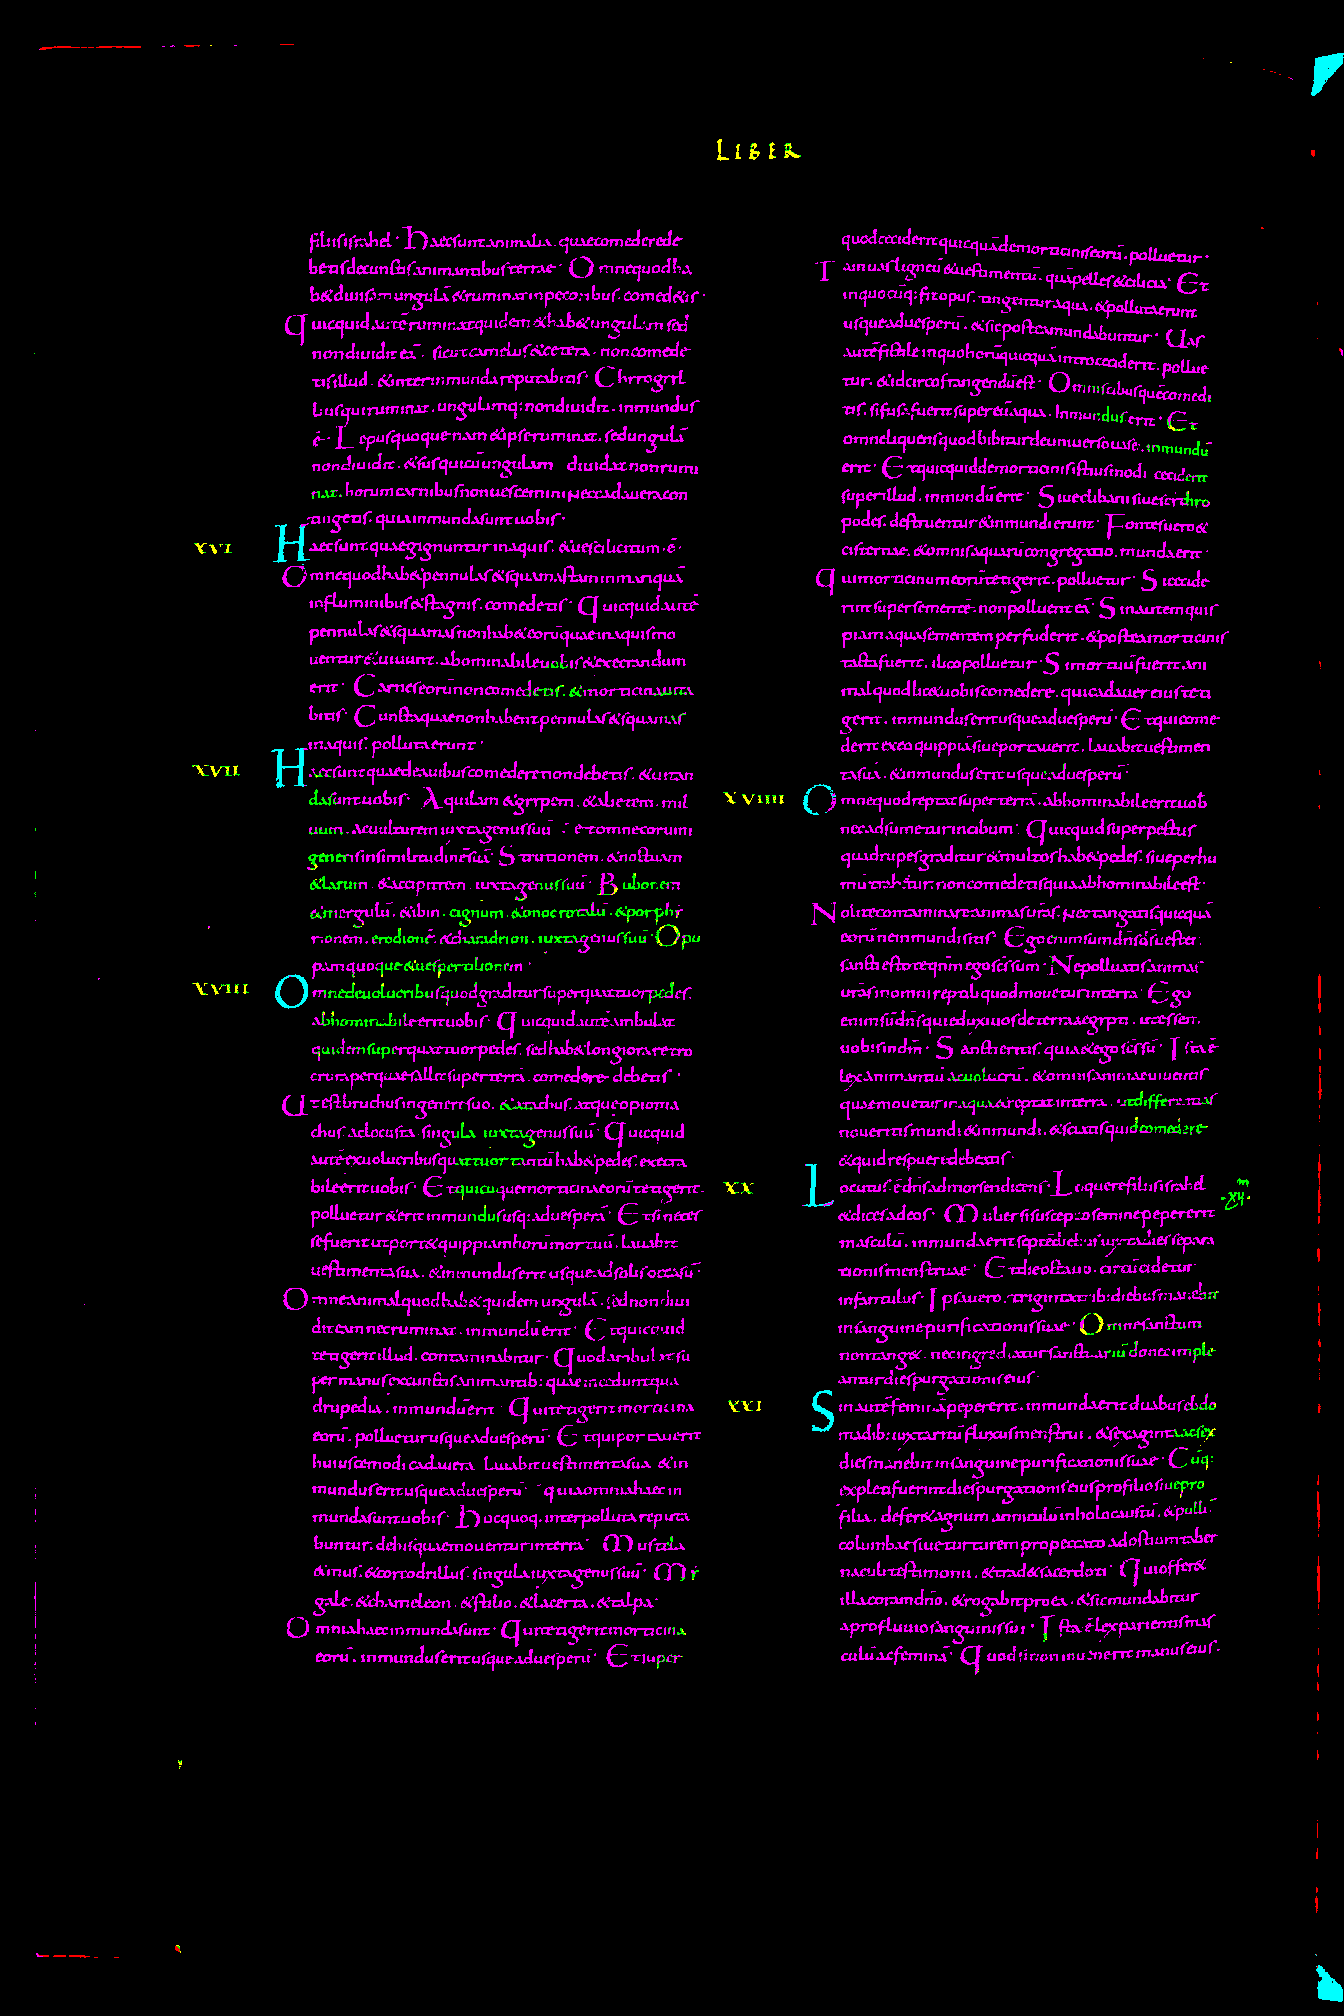 LIBER
filiis israhel · Haec sunt animalia · quae comedere de
betis de cunctis animantibus terrae · Omne quod ha
b& diuisam ungulā & ruminat in pecoribus · comed&is ·
Quicquid autē ruminat quidem & hab& ungulam sed
non diuidit eā · sicut camelus & cetera · non comede
tis illud · & inter inmunda reputabitis · Chirogril
lius qui ruminat · ungulamq: non diuidit · inmundus
ē · Lepus quoque nam & ipse ruminat · sed ungulā
non diuidit · & sus qui cū ungulam diuidat non rumi
nat · horum carnibus non uescemini nec cadauera con
tingetis · quia inmunda sunt uobis ·
XVI Haec sunt quae gignuntur in aquis · & uesci licitum · ē ·
Omne quod hab& pennulas & squamas tam in mari quā
in fluminibus & stagnis · comedetis · Quicquid autē
pennulas & squamas non hab& eorū quae in aquis mo
uentur & uiuunt · abominabile uobis & execrandum
erit · Carnes eorū non comedetis · & morticina uita
bitis · Cuncta quae non habent pennulas & squamas
in aquis · polluta erunt ·
XVII Haec sunt quae de auibus comedere non debetis · & uitan
da sunt uobis · Aquilam & gripem · & alietem · mil
uum · ac uulturem iuxta genus suū · et omne corum
generis in similitudinē suā Strutionem · & noctuam
& larum · & accipitrem · iuxta genus suū · Bubonem
& mergulū · & ibin · cignum · & onocrotalū · & porphi
rionem · erodionē · & charadrion · iuxta genus suū · Opu
pam quoque & uespertilionem ·
XVIII Omne de uolucribus quod graditur super quattuor pedes ·
abhominabile erit uobis · Quicquid autē ambulat
quidem super quattuor pedes · sed hab& longiora retro
crura per quae salit super terrā · comedere debetis ·
Ut est bruchus in genere suo · & atachus · atque opioma
chus ac locusta · singula iuxta genus suū · Quicquid
autē ex uolucribus quattuor tantū hab& pedes · execra
bile erit uobis · Et quicuque morticina eorū tetigerit ·
polluetur & erit inmundus usq: ad uesperā · Et si neces
se fuerit ut port& quippiam horum mortuū · lauabit
uestimenta sua · & inmundus erit usque ad solis occasū ·
Omne animal quod hab& quidem ungulā · sed non diui
dit eam nec ruminat · inmundū erit · Et quicquid
tetigerit illud · contaminabitur · Quod ambulat su
per manus ex cunctis animantib: quae incedunt qua
drupedia · inmundū erit · Qui tetigerit morticina
eorū · polluetur usque ad uesperū · Et qui portauerit
huiuscemodi cadauera · lauabit uestimenta sua & in
mundus erit usque ad uesperū · quia omnia haec in
munda sunt uobis · Hucquoq · inter polluta reputa
buntur · de his quae mouentur in terra · Mustela
& mus · & corcodrillus · singula iuxta genus suū · Mi
gale · & chameleon · & stilio · & lacerta · & talpa ·
Omnia haec inmunda sunt · Qui tetigerit morticina
eorū · inmundus erit usque ad uesperū · Et super
quod ceciderit quicquā de morticinis eorū · polluetur ·
Tam uas ligneū & uestimentū · quā pelles & cilicia · Et
in quocūq: fit opus · tingentur aqua · & polluta erunt
usque ad uesperū · & sic postea mundabuntur · Uas
autē fictile in quo horū quicquā intro ceciderit · pollue
tur · & idcirco frangendū est · Omnis cibus quē comedi
tis · si fusa fuerit super eū aqua · Inmundus erit · Et
omne liquens quod bibitur de uniuerso uase · inmundū
erit · Et quicquid de morticinis istiusmodi ceciderit
super illud · inmundū erit · Siue clibani siue cithro
podes · destruentur & inmundi erunt · Fontes uero &
cisternae · & omnis aquarū congregatio · munda erit ·
Qui morticinum eorū tetigerit · polluetur · Si cecide
rint super sementē · non polluent eā · Sin autem quis
piam aqua sementem perfuderit · & postea morticinis
tacta fuerit · ilico polluetur · Si mortuū fuerit ani
mal quod lic& uobis comedere · qui cadauer eius teti
gerit · inmundus erit usque ad uesperū · Et qui come
derit ex eo quippiā siue portauerit · lauabit uestimen
ta sua · & inmundus erit usque ad uesperū ·
XVIIII Omne quod reptat super terrā · abhominabile erit uob
nec adsumetur in cibum · Quicquid super pectus
quadrupes graditur & multos hab& pedes · siue per hu
mū trahitur · non comedetis quia abhominabile est ·
Nolite contaminare animas urās · nec tangatis quicquā
eorū ne inmundi sitis · Ego enim sum dñs ds uester ·
sancti estote qñm ego scs sum · Ne polluatis animas
urās in omni reptili quod mouetur in terra · Ego
enim sū dñs qui eduxi uos de terra aegypti · ut essem ·
uobis in dm̄ · Sancti eritis · quia & ego scs sū · Ista ē
lex animantiū ac uolucrū · & omnis animae uiuentis
quae mouetur in aqua & reptat in terra · ut differentias
noueritis mundi & inmundi · & sciatis quid comedere
& quid respuere debeatis ·
XX Locutus · ē dñs ad moysen dicens · Loquere filiis israhel
& dices ad eos · Mulier si suscepto semine pepererit
masculū · inmunda erit septē diebus iuxta dies separa
tionis menstruae · Et die octauo · circūcidetur
infantulus · Ipsa uero · triginta trib: diebus manebit
in sanguine purificationis suae · Omne sanctum
non tang& · nec ingrediatur sanctuariū donec imple
antur dies purgationis eius ·
XXI Sin autē feminā pepererit · inmunda erit duabus ebdo
madib: iuxta ritū fluxus menstrui · & sexaginta ac sex
dies manebit in sanguine purificationis suae · Cūq:
expleti fuerint dies purgationis eius pro filio siue pro
filia · defer& agnum anniculū in holocaustū · & pullū
columbae siue turturem pro peccato ad ostium taber
naculi testimonii · & tradet sacerdoti · Qui offer&
illa coram dño · & rogabit pro ea · & sic mundabitur
a profluuio sanguinis sui · Ista ē lex parientis mas
culū ac feminā · Quod si non inuenerit manus eius ·